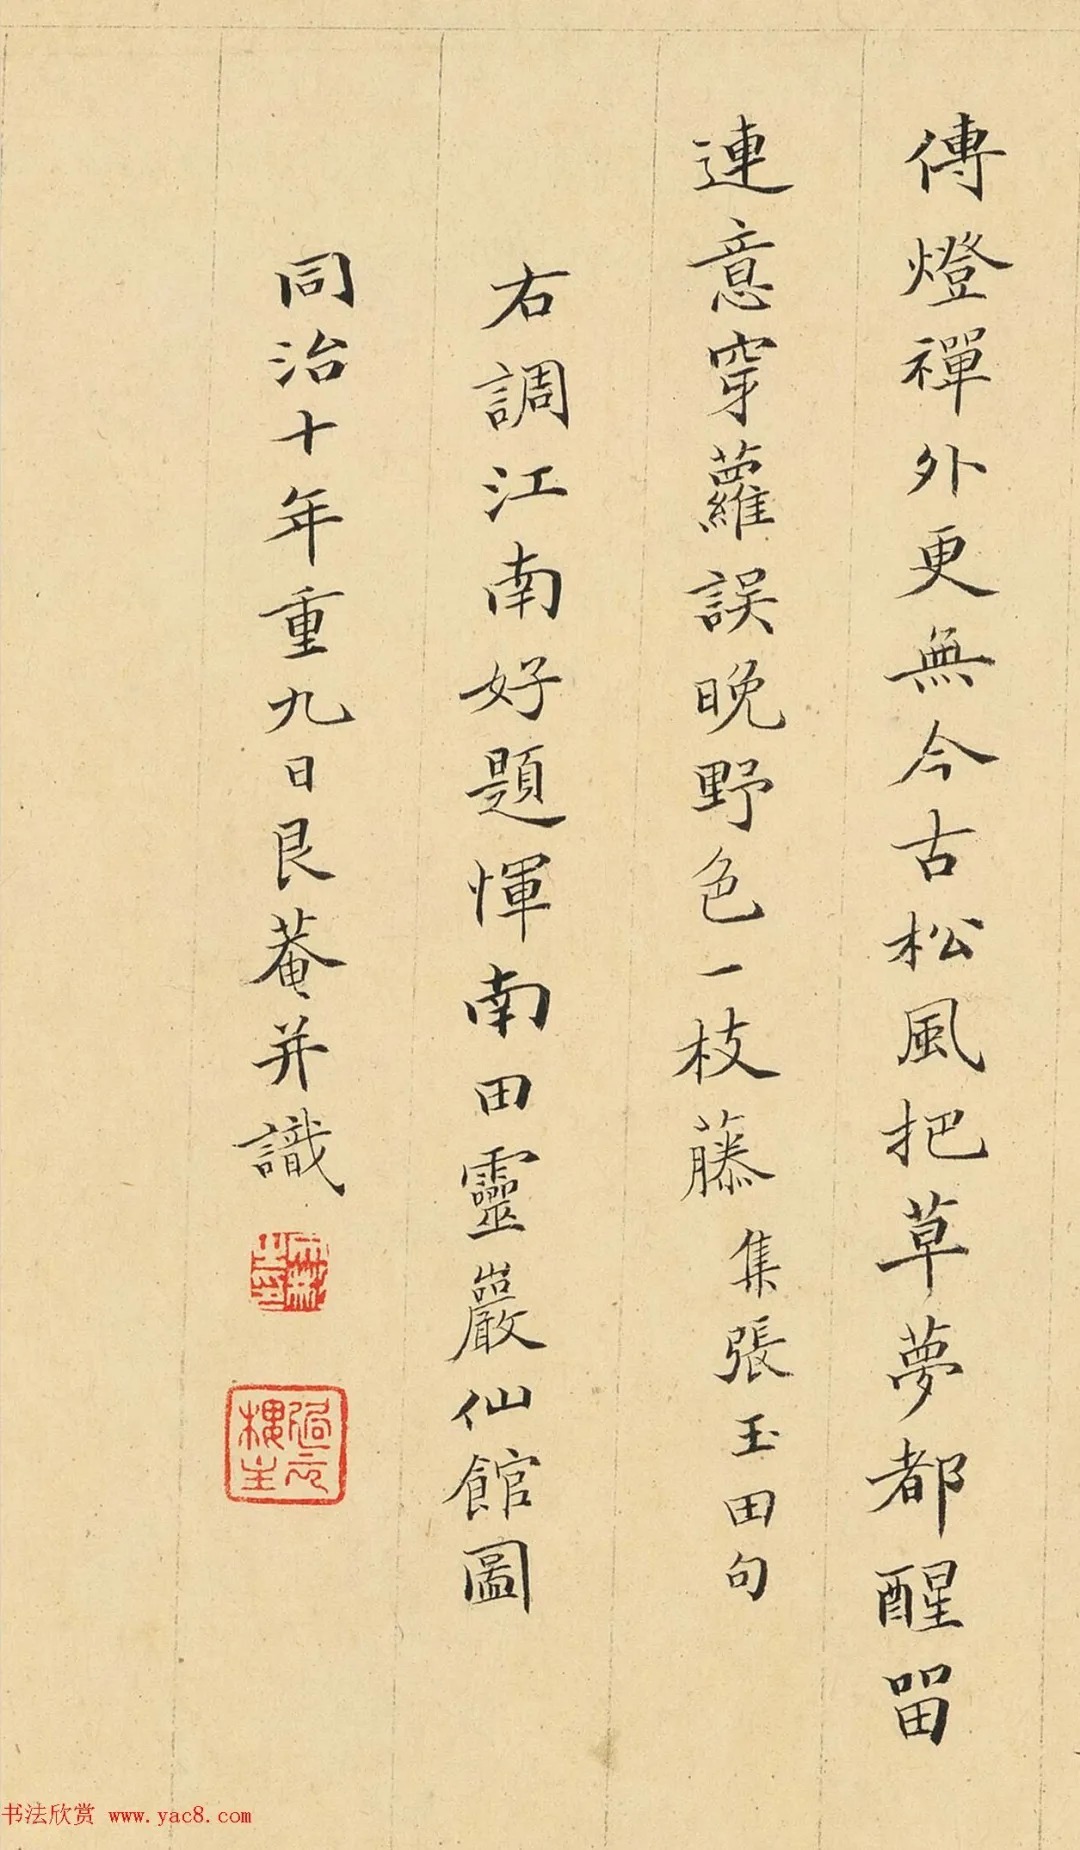 傳燈禪外更無今古松風把草夢都醒畱
連意穿蘿誤晚野色一枝藤 集張玉田句
右調江南好題惲南田靈巖仙館圖
同治十年重九日艮菴并識
過云樓主
书法欣赏 www.yac8.com